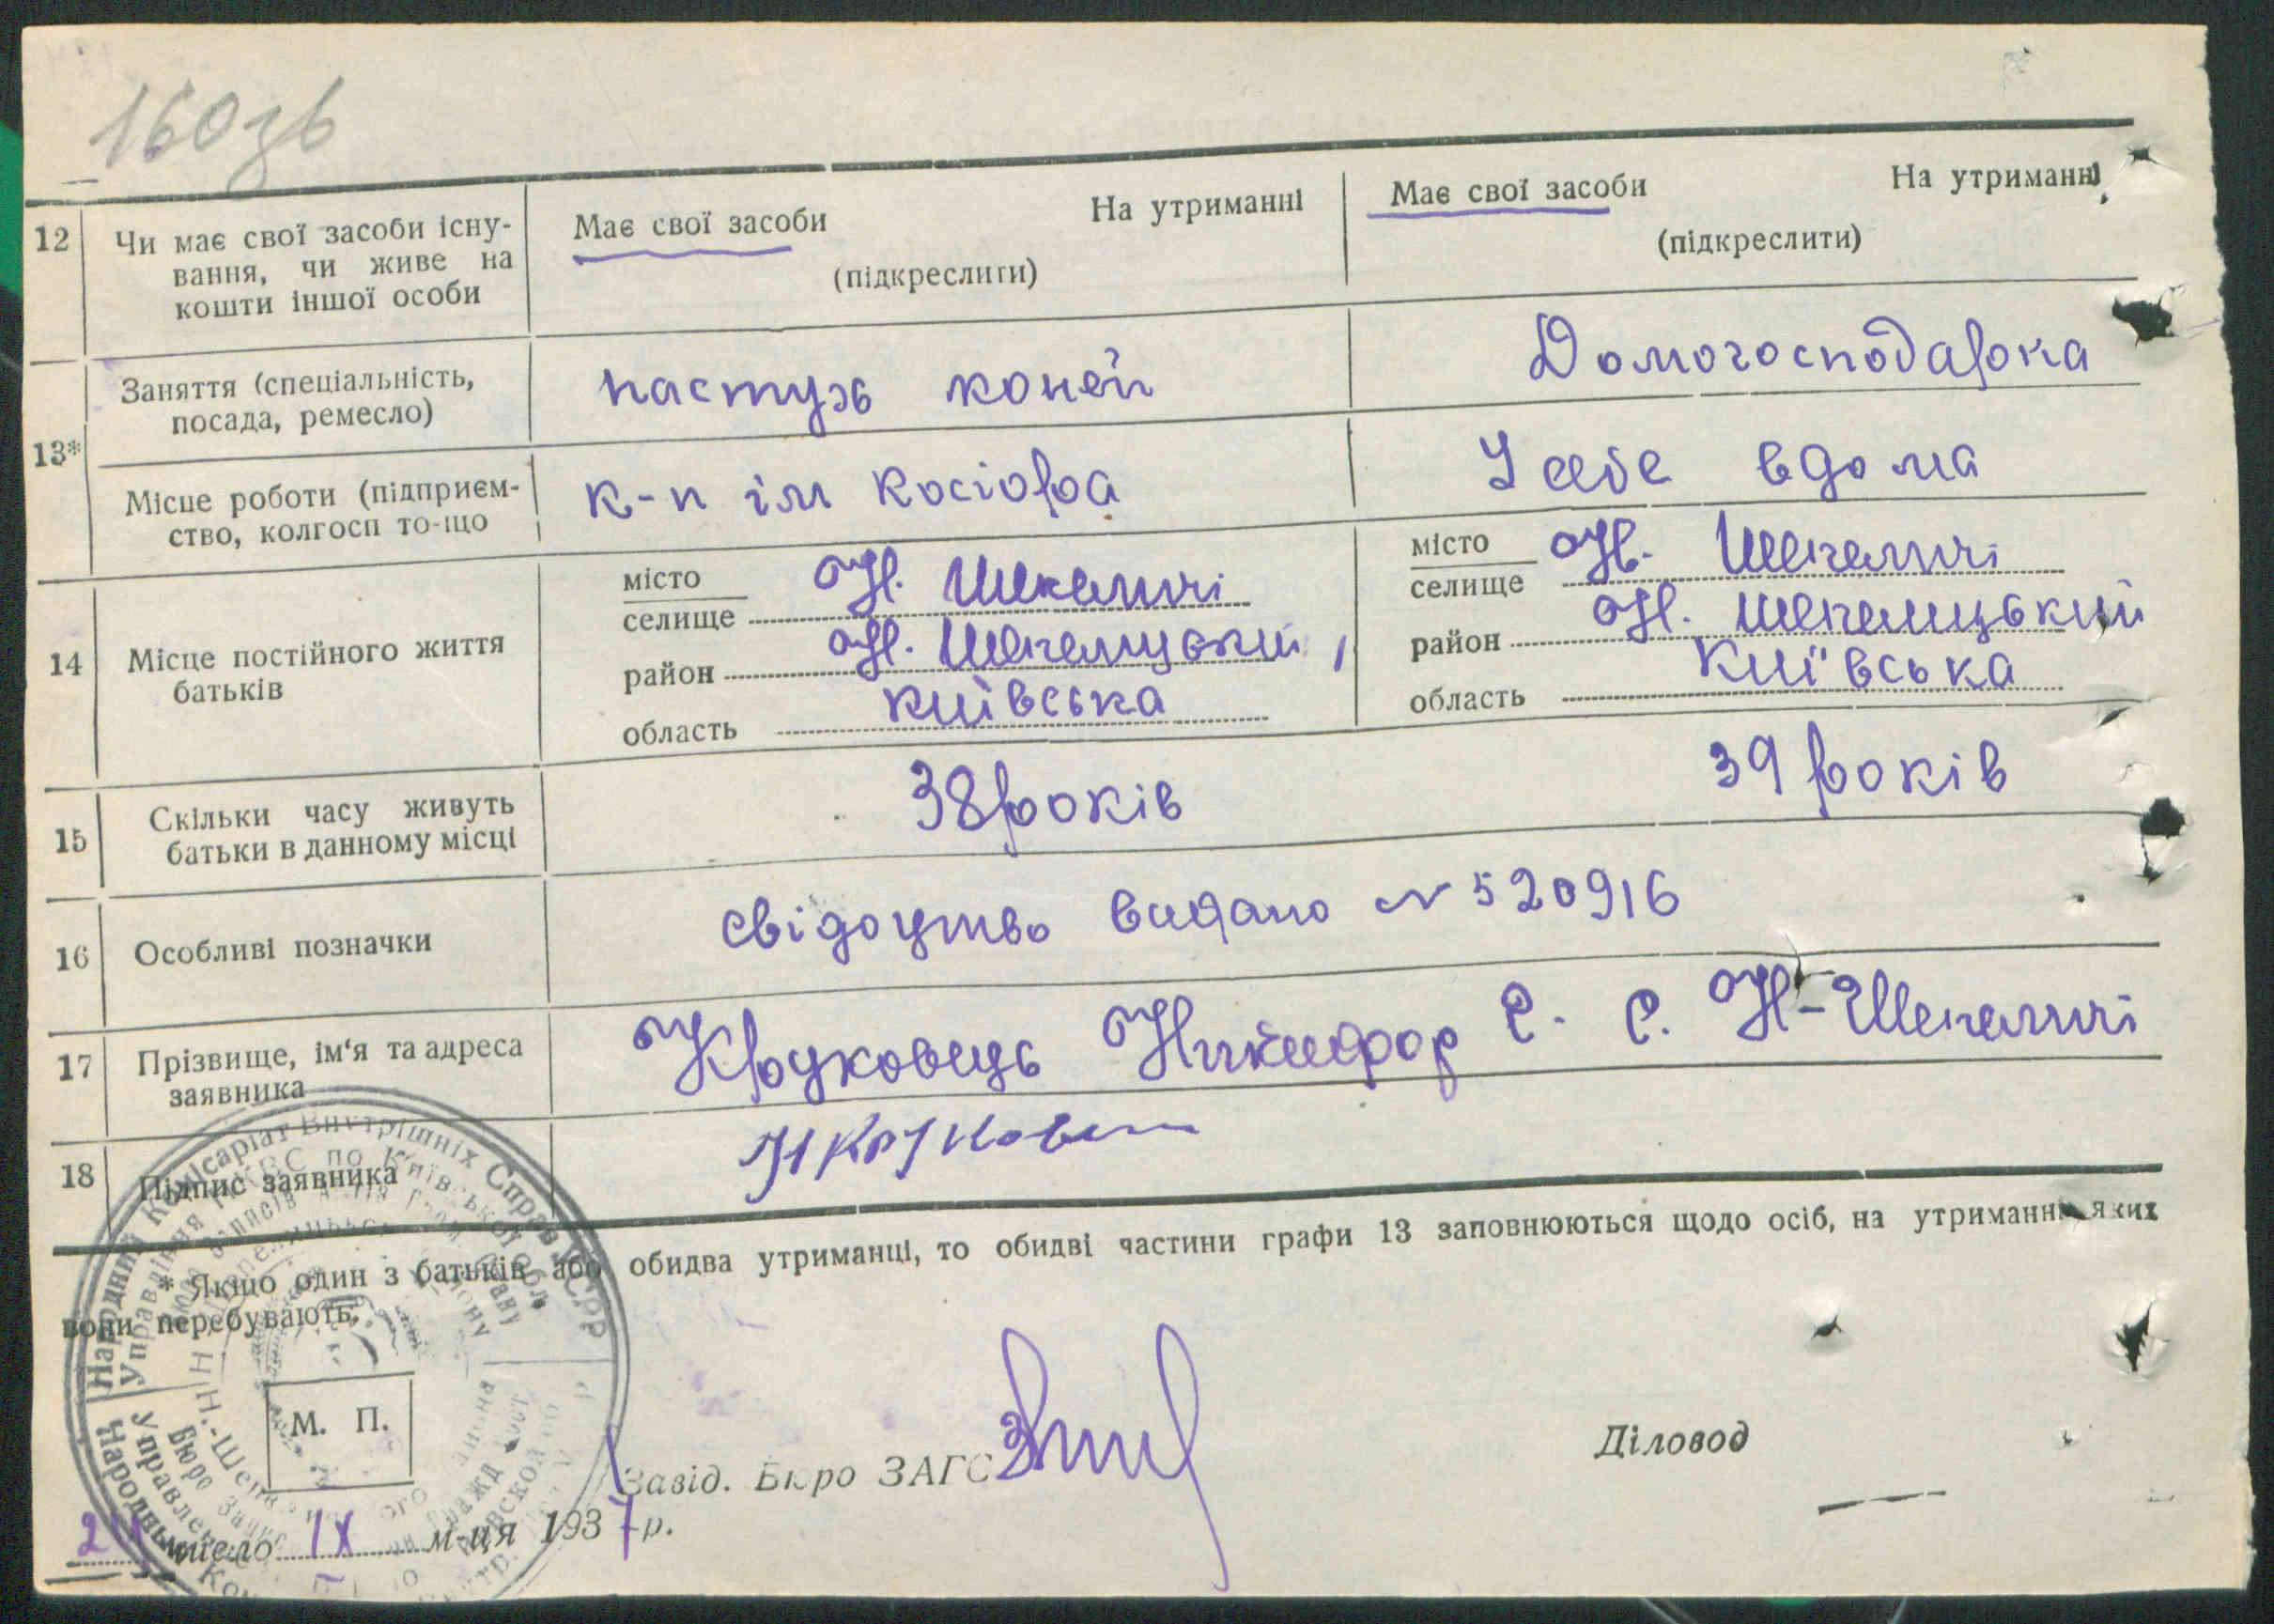 160зв
12 Чи має свої засоби існу- Має свої засоби На утриманні Має свої засоби На утриманні
вання, чи живе на (підкреслити) (підкреслити)
кошти іншої особи
13* Заняття (спеціальність, пастух коней Домогосподарка
посада, ремесло)
Місце роботи (підприєм- к-п ім Косіора У себе вдома
ство, колгосп то-що
14 Місце постійного життя
батьків
місто Н. Шепеличі місто Н. Шепеличі
селище селище
район Н. Шепелицький район Н. Шепелицький
область Київська область Київська
15 Скільки часу живуть 38 років 39 років
батьки в данному місці
16 Особливі позначки свідоцтво видано № 520916
17 Прізвище, ім'я та адреса Круковець Никифор С. с. Н-Шепеличі
заявника
18 Підпис заявника Н Круковец
* Якщо один з батьків або обидва утриманці, то обидві частини графи 13 заповнюються щодо осіб, на утриманні яких
вони перебувають.
Народний Комісаріат Внутрішніх Справ УСРР
Управління НКВС по Київській обл.
М. П.
Завід. Бюро ЗАГС Діловод
число IX м-ця 1937 р.